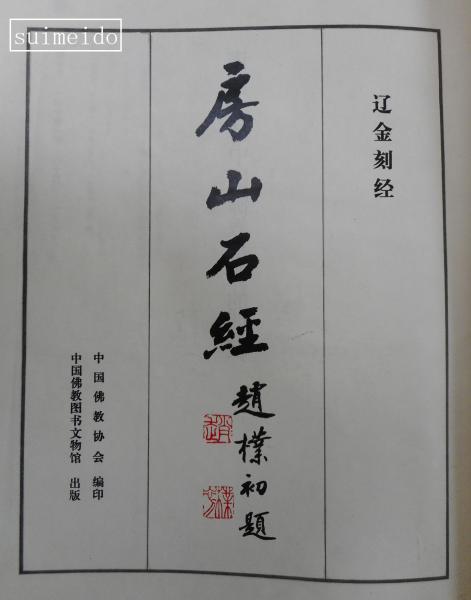 suimeido
辽金刻经
房山石經
趙樸初題
中国佛教协会 编印
中国佛教图书文物馆 出版